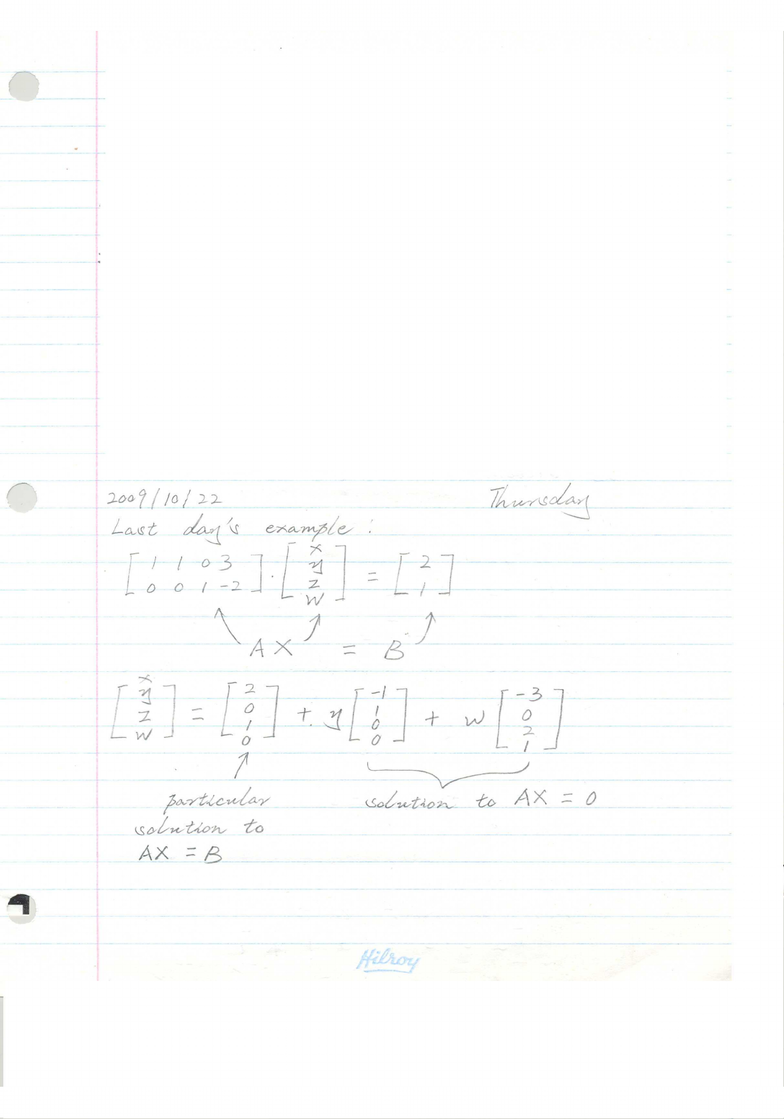 2009/10/22 Thursday
Last day's example:
[1 1 0 3; 0 0 1 -2] · [x; y; z; w] = [2; 1]
AX = B
[x; y; z; w] = [2; 0; 1; 0] + y[-1; 1; 0; 0] + w[-3; 0; 2; 1]
particular solution to AX = 0
solution to
AX = B
Hilroy